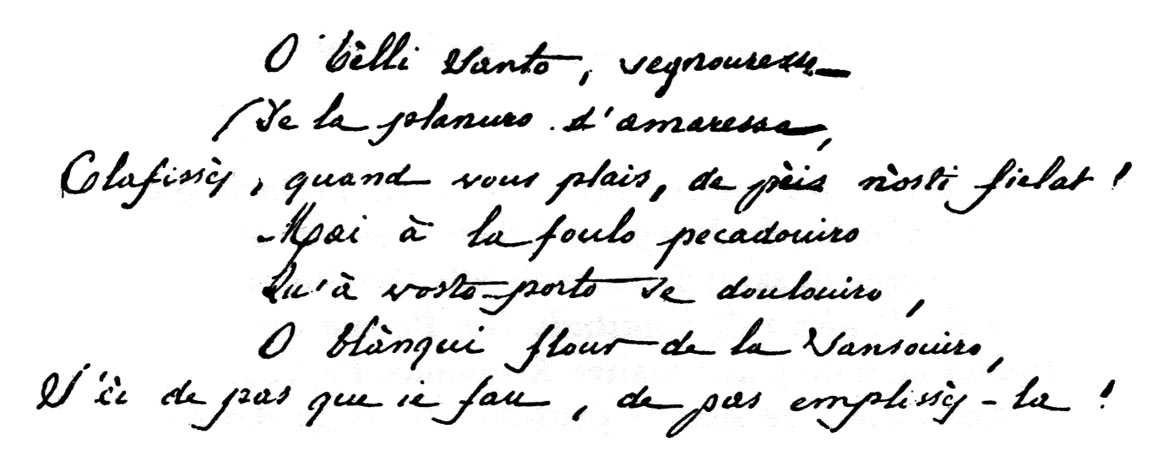 O bèlli Santo, segnouresso
De la planuro d'amaresso,
Clafissès, quand vous plais, de pèis nòsti fielat !
Mai à la foulo pecadouiro
Qu'à vosto porto se doulouiro,
O blànqui flour de la Sansouiro,
S'èi de pas que ie fau, de pas emplissès-la !